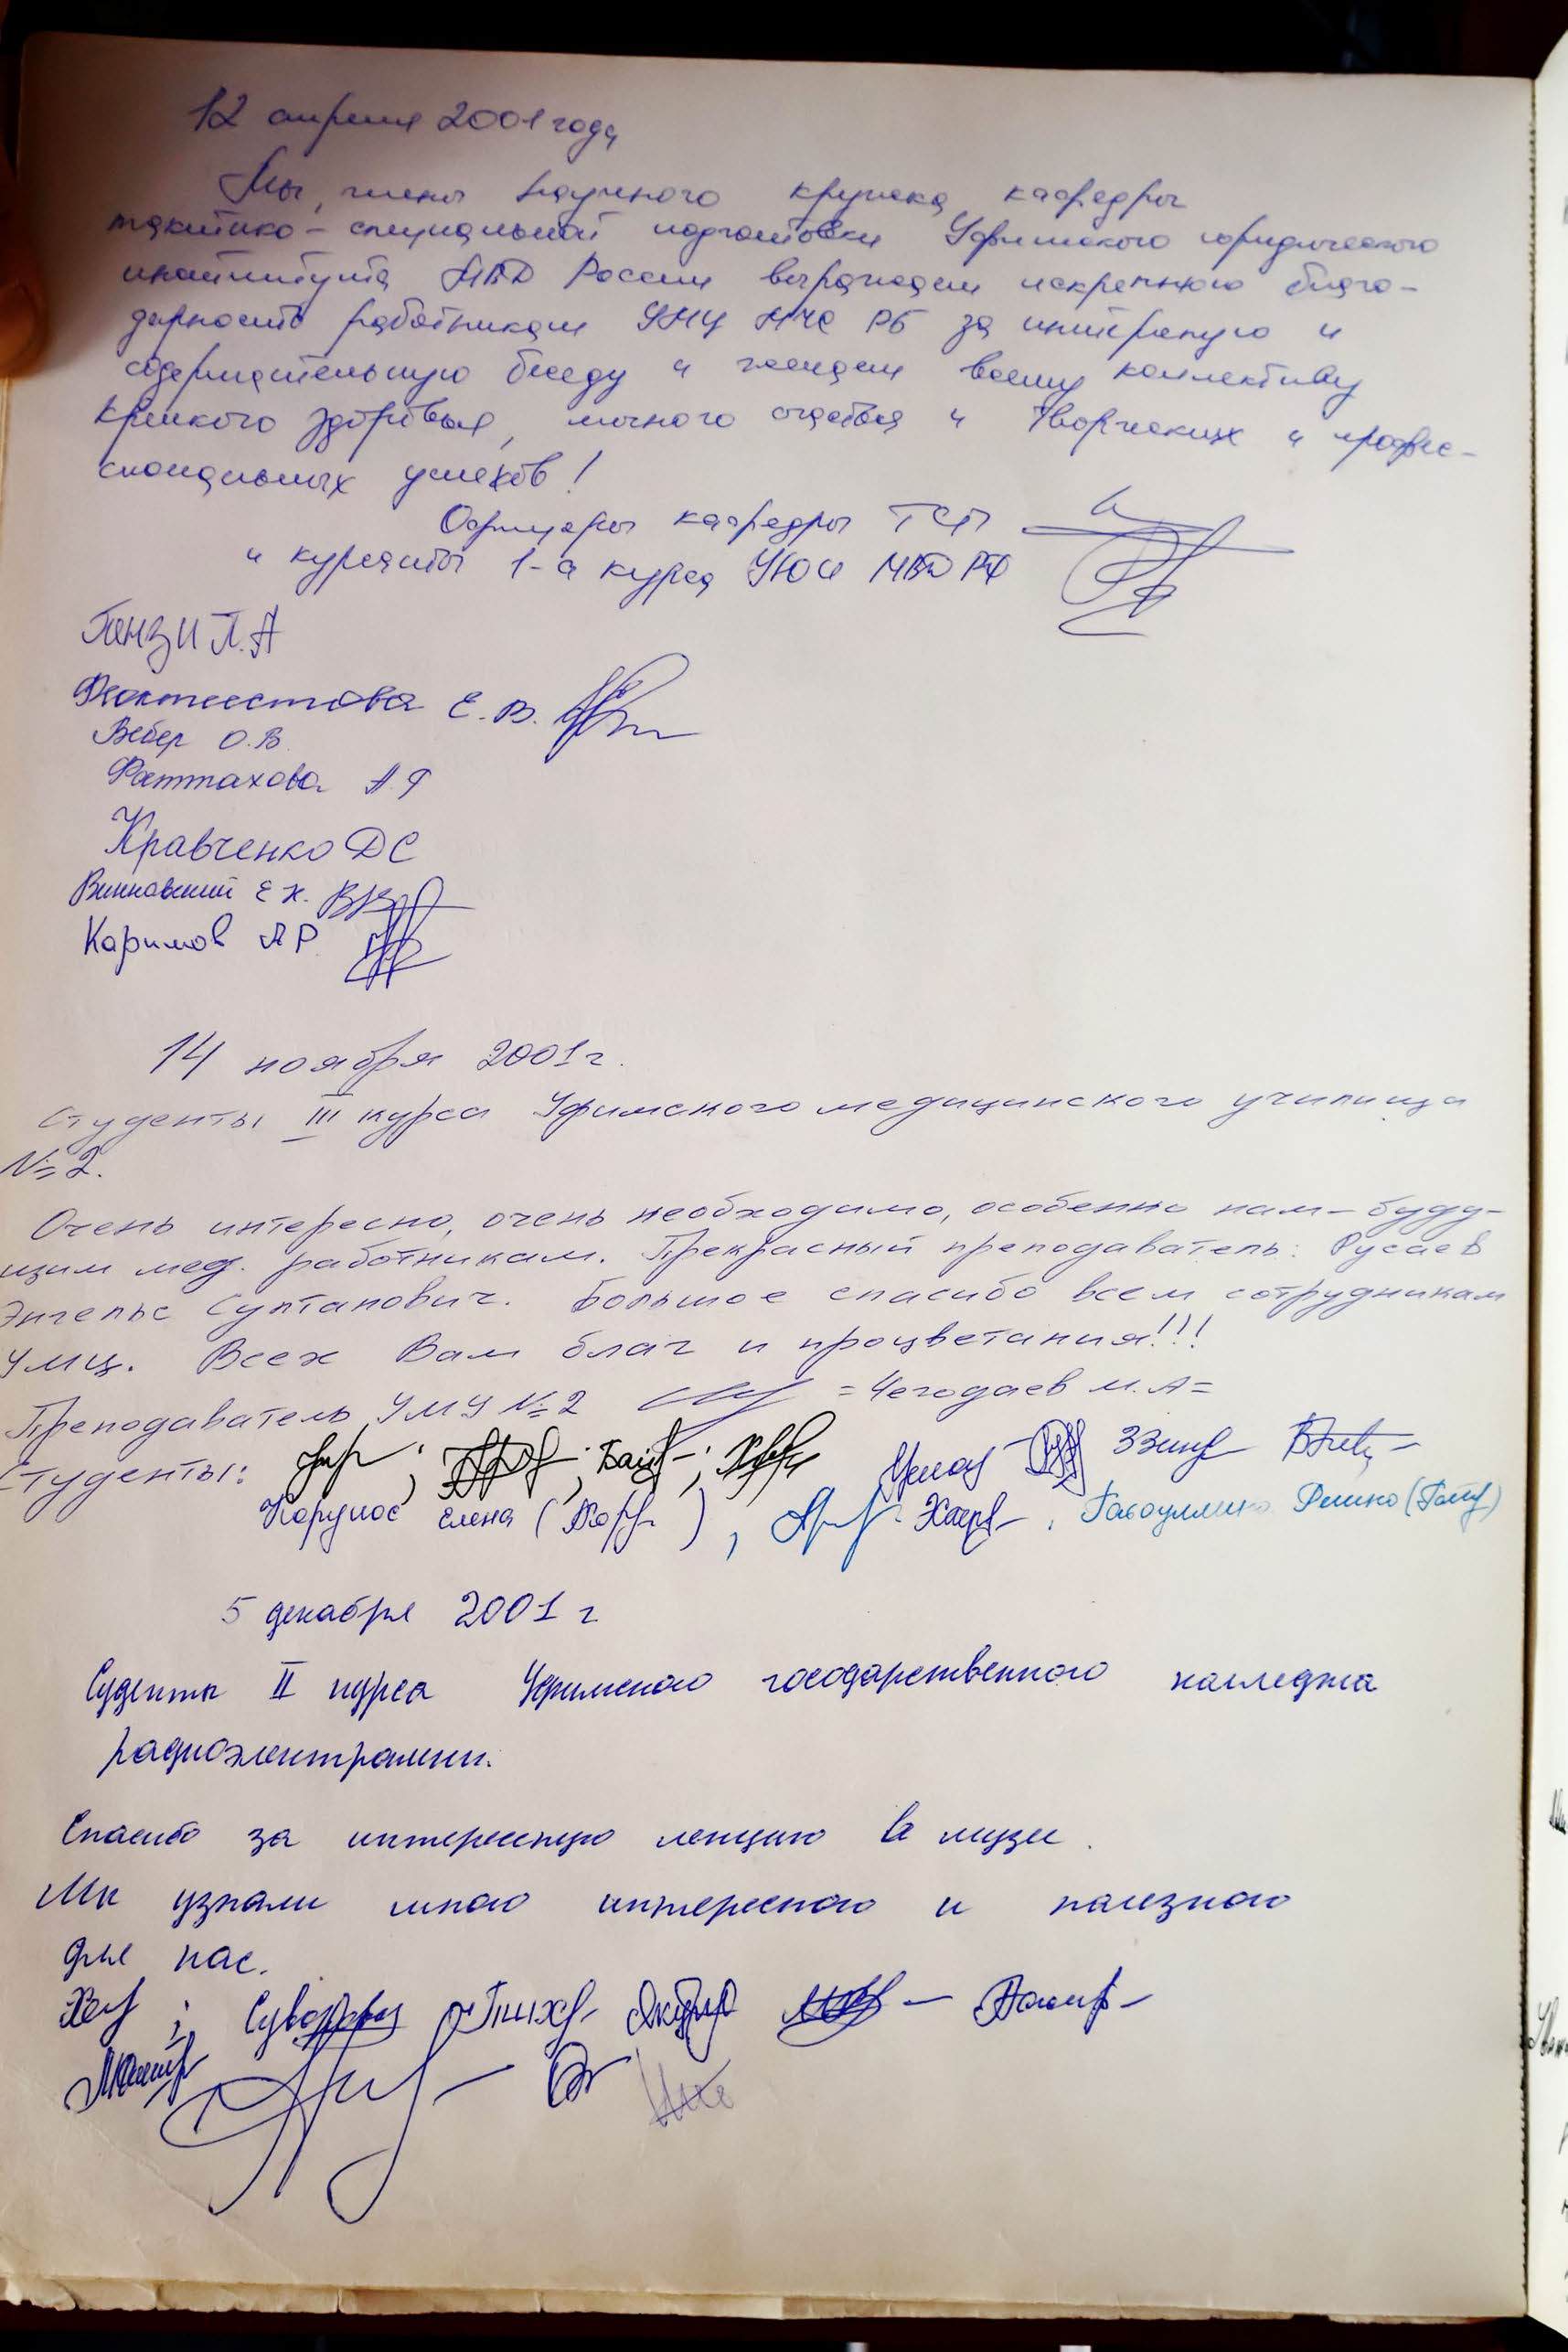 12 апреля 2001 года
Мы, члены научного кружка кафедры
тактико-специальной подготовки Уфимского юридического
института МВД России выражаем искреннюю благо-
дарность работникам УМЦ МЧС РБ за интересную и
содержательную беседу и желаем всему коллективу
крепкого здоровья, личного счастья и творческих и профес-
сиональных успехов!
Офицеры кафедры ТСП
и курсанты 1-а курса УЮИ МВД РФ
Феоктистова Е.В.
Вебер О.В.
Фаттахова А.Р
Кравченко ДС
Винновский Е Н.
Каримов АР
14 ноября 2001г.
Студенты III курса Уфимского медицинского училища
№2.
Очень интересно, очень необходимо, особенно нам - буду-
щим мед. работникам. Прекрасный преподаватель: Русаев
Энгельс Султанович. Большое спасибо всем сотрудникам
УМЦ. Всех Вам благ и процветания!!!
Преподаватель УМУ №2 =Чегодаев М.А=
Студенты:
Елена
5 декабря 2001 г
Суденты II курса Уфимского госодарственного колледжа
радиоэлектроники.
Спасибо за интересную лекцию в музе.
Мы узнали много интересного и полезного
для нас.